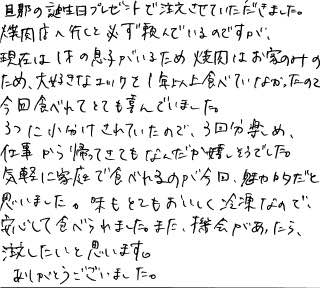 旦那の誕生日プレゼントで注文させていただきました。
焼肉店へ行くと必ず頼んでいるのですが、
現在は1才の息子がいるため焼肉はお家のみの
ため、大好きなユッケを1年以上食べていなかったので
今回食べれてとても喜んでいました。
3つに小分けされていたので、3回分楽しめ、
仕事から帰ってきてもなんだか嬉しそうでした。
気軽に家庭で食べれるのが今回、魅力的だと
思いました。味もとてもおいしく冷凍なので、
安心して食べられました。また、機会があったら、
注文したいと思います。
ありがとうございました。